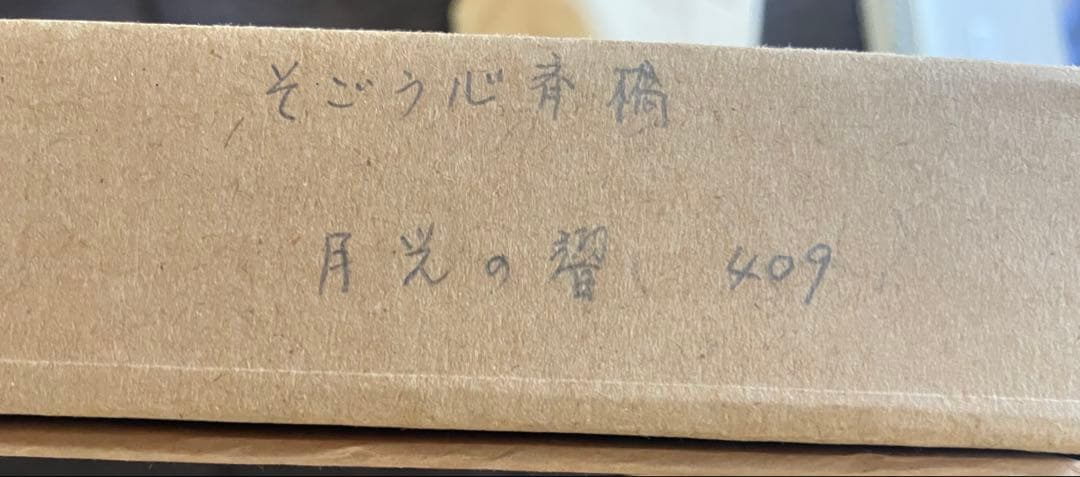 そごう心斉橋
月光の響 409